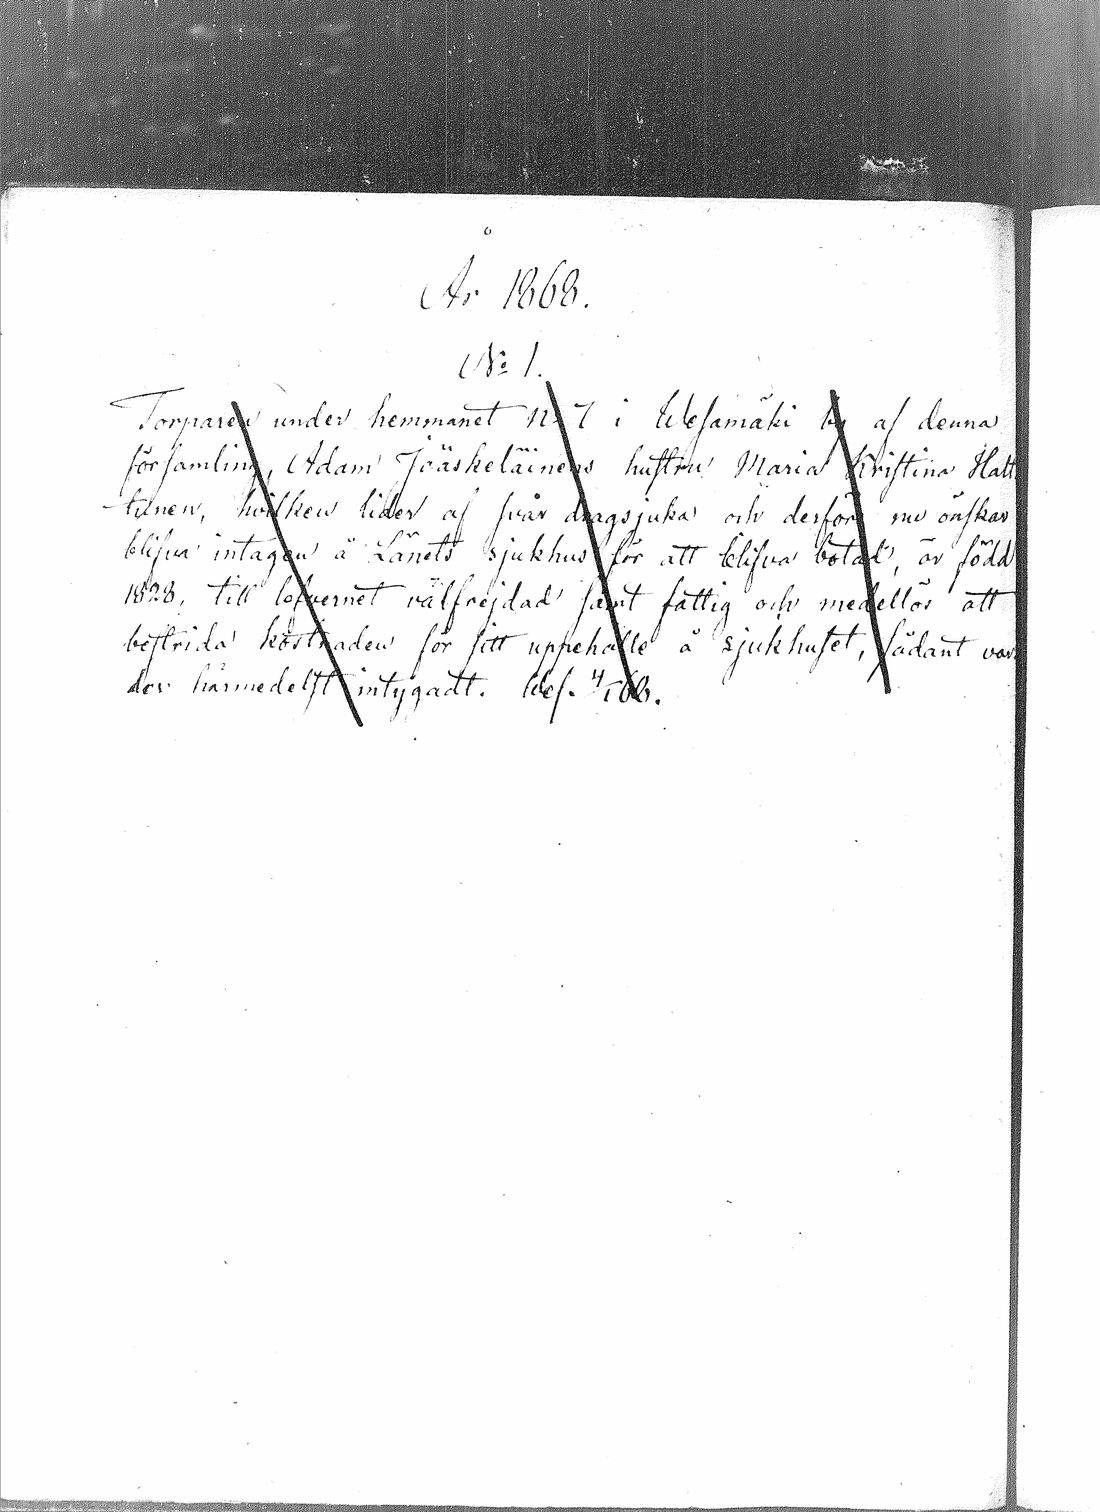 År 1868.
No 1.
Torparen under hemmanet No 7 i Wesamäki by af denna
församling, Adam Jääskeläinens hustru Maria Kristina Hatt
tunen, hvilken lider af svår dragsjuka och derför nu önskar
blifva intagen å Länets sjukhus för att blifva botad, är född
1828, till lefvernet välfrejdad samt fattig och medellös att
bestrida kostnaden för sitt uppehälle å sjukhuset, sådant var
der härmedelst intygadt. Wes.